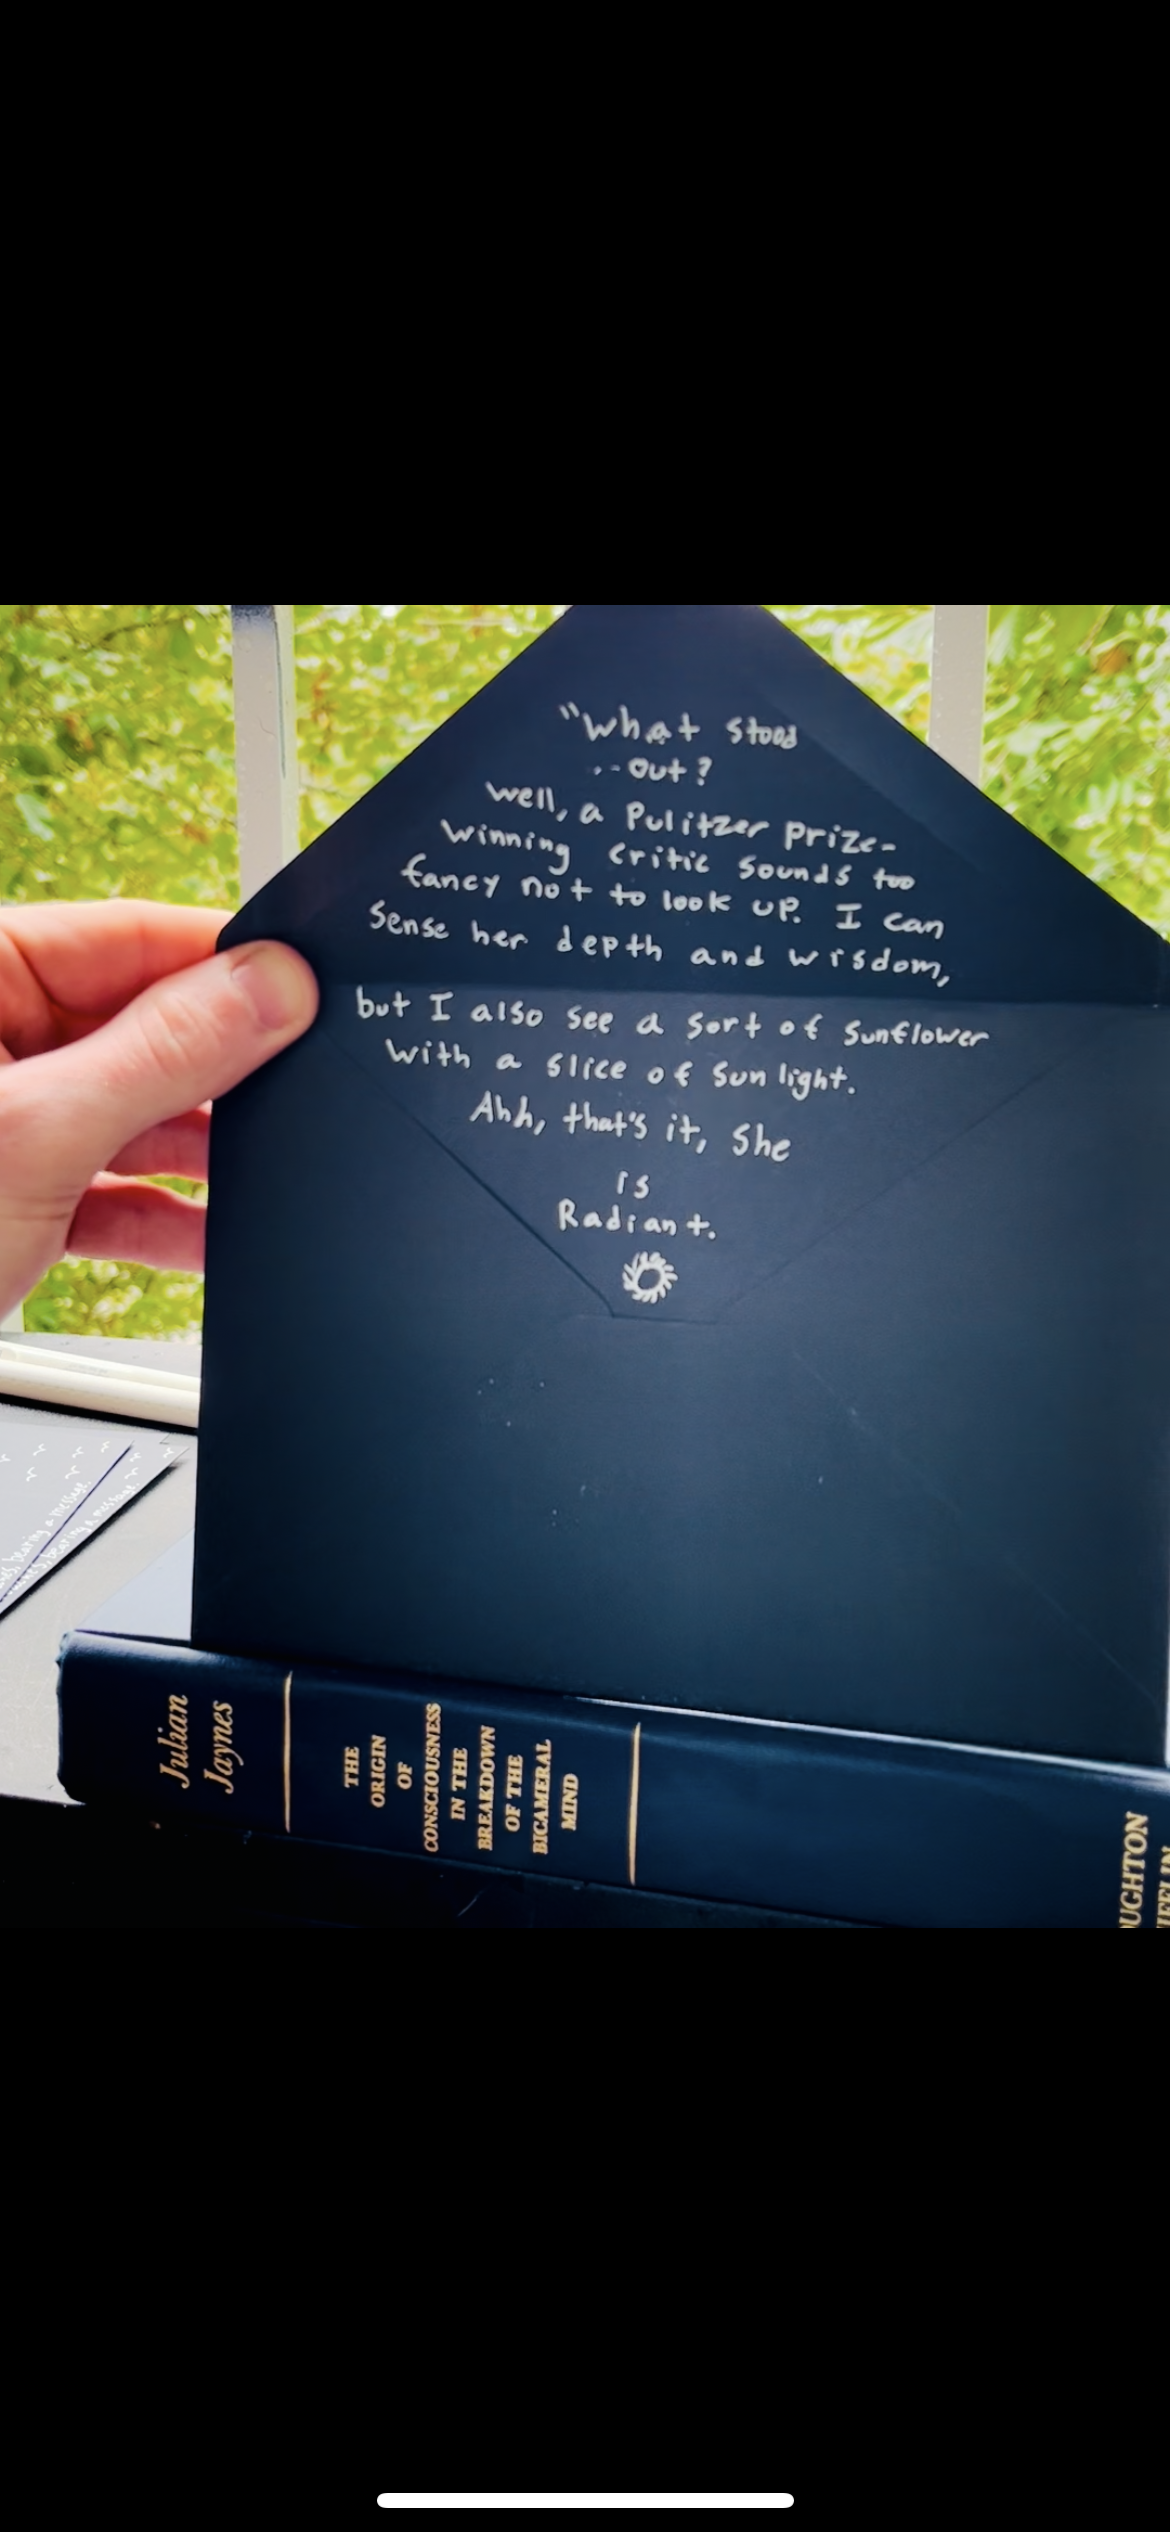 "What stood
... out?
Well, a Pulitzer Prize-
winning critic sounds too
fancy not to look up. I can
sense her depth and wisdom,
but I also see a sort of sunflower
with a slice of sunlight.
Ahh, that's it, she
is
Radiant.
bearing a message.
bearing a message.
Julian
Jaynes
THE
ORIGIN
OF
CONSCIOUSNESS
IN THE
BREAKDOWN
OF THE
BICAMERAL
MIND
OUGHTON